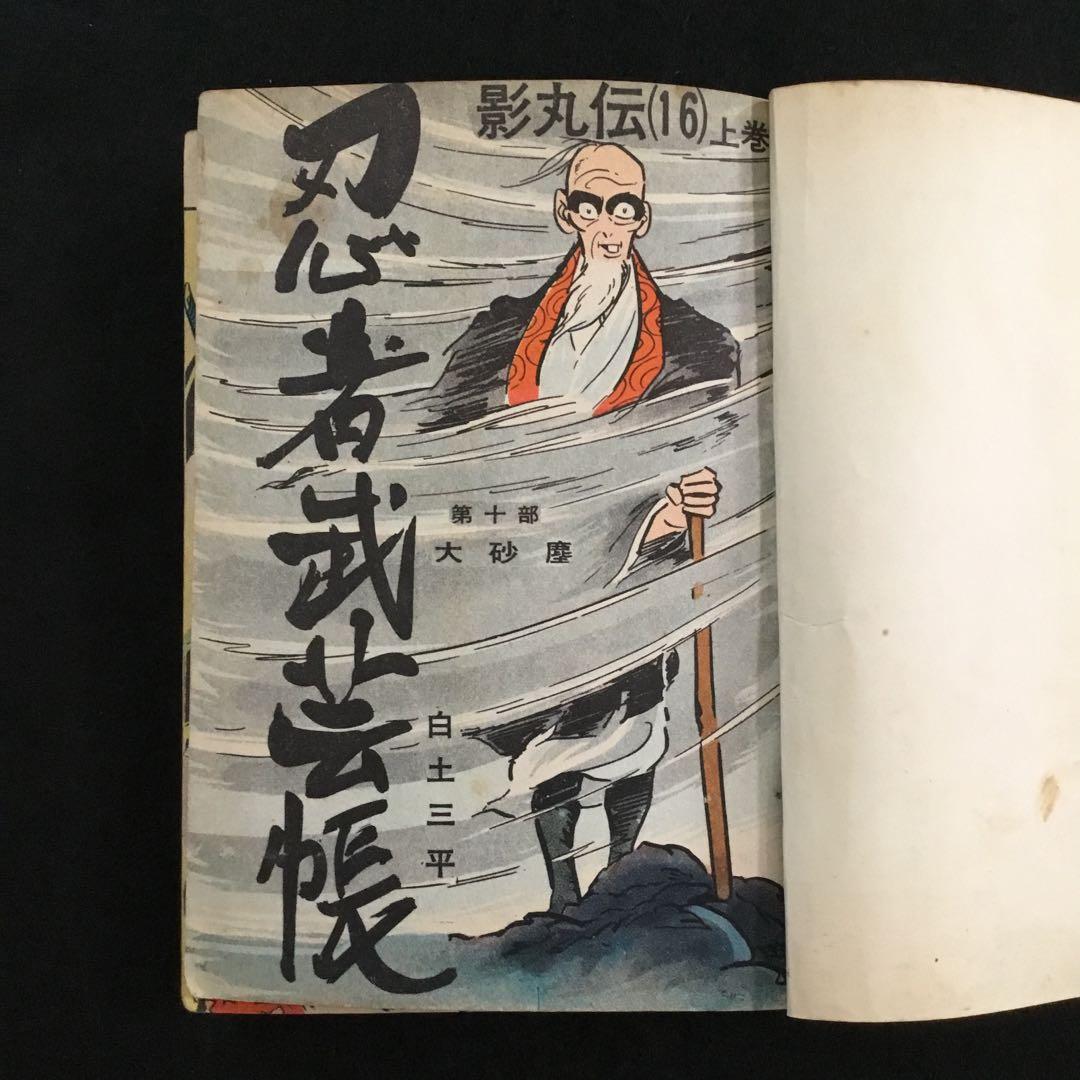 影丸伝(16)上巻
忍者武芸帳
第十部
大砂塵
白土三平